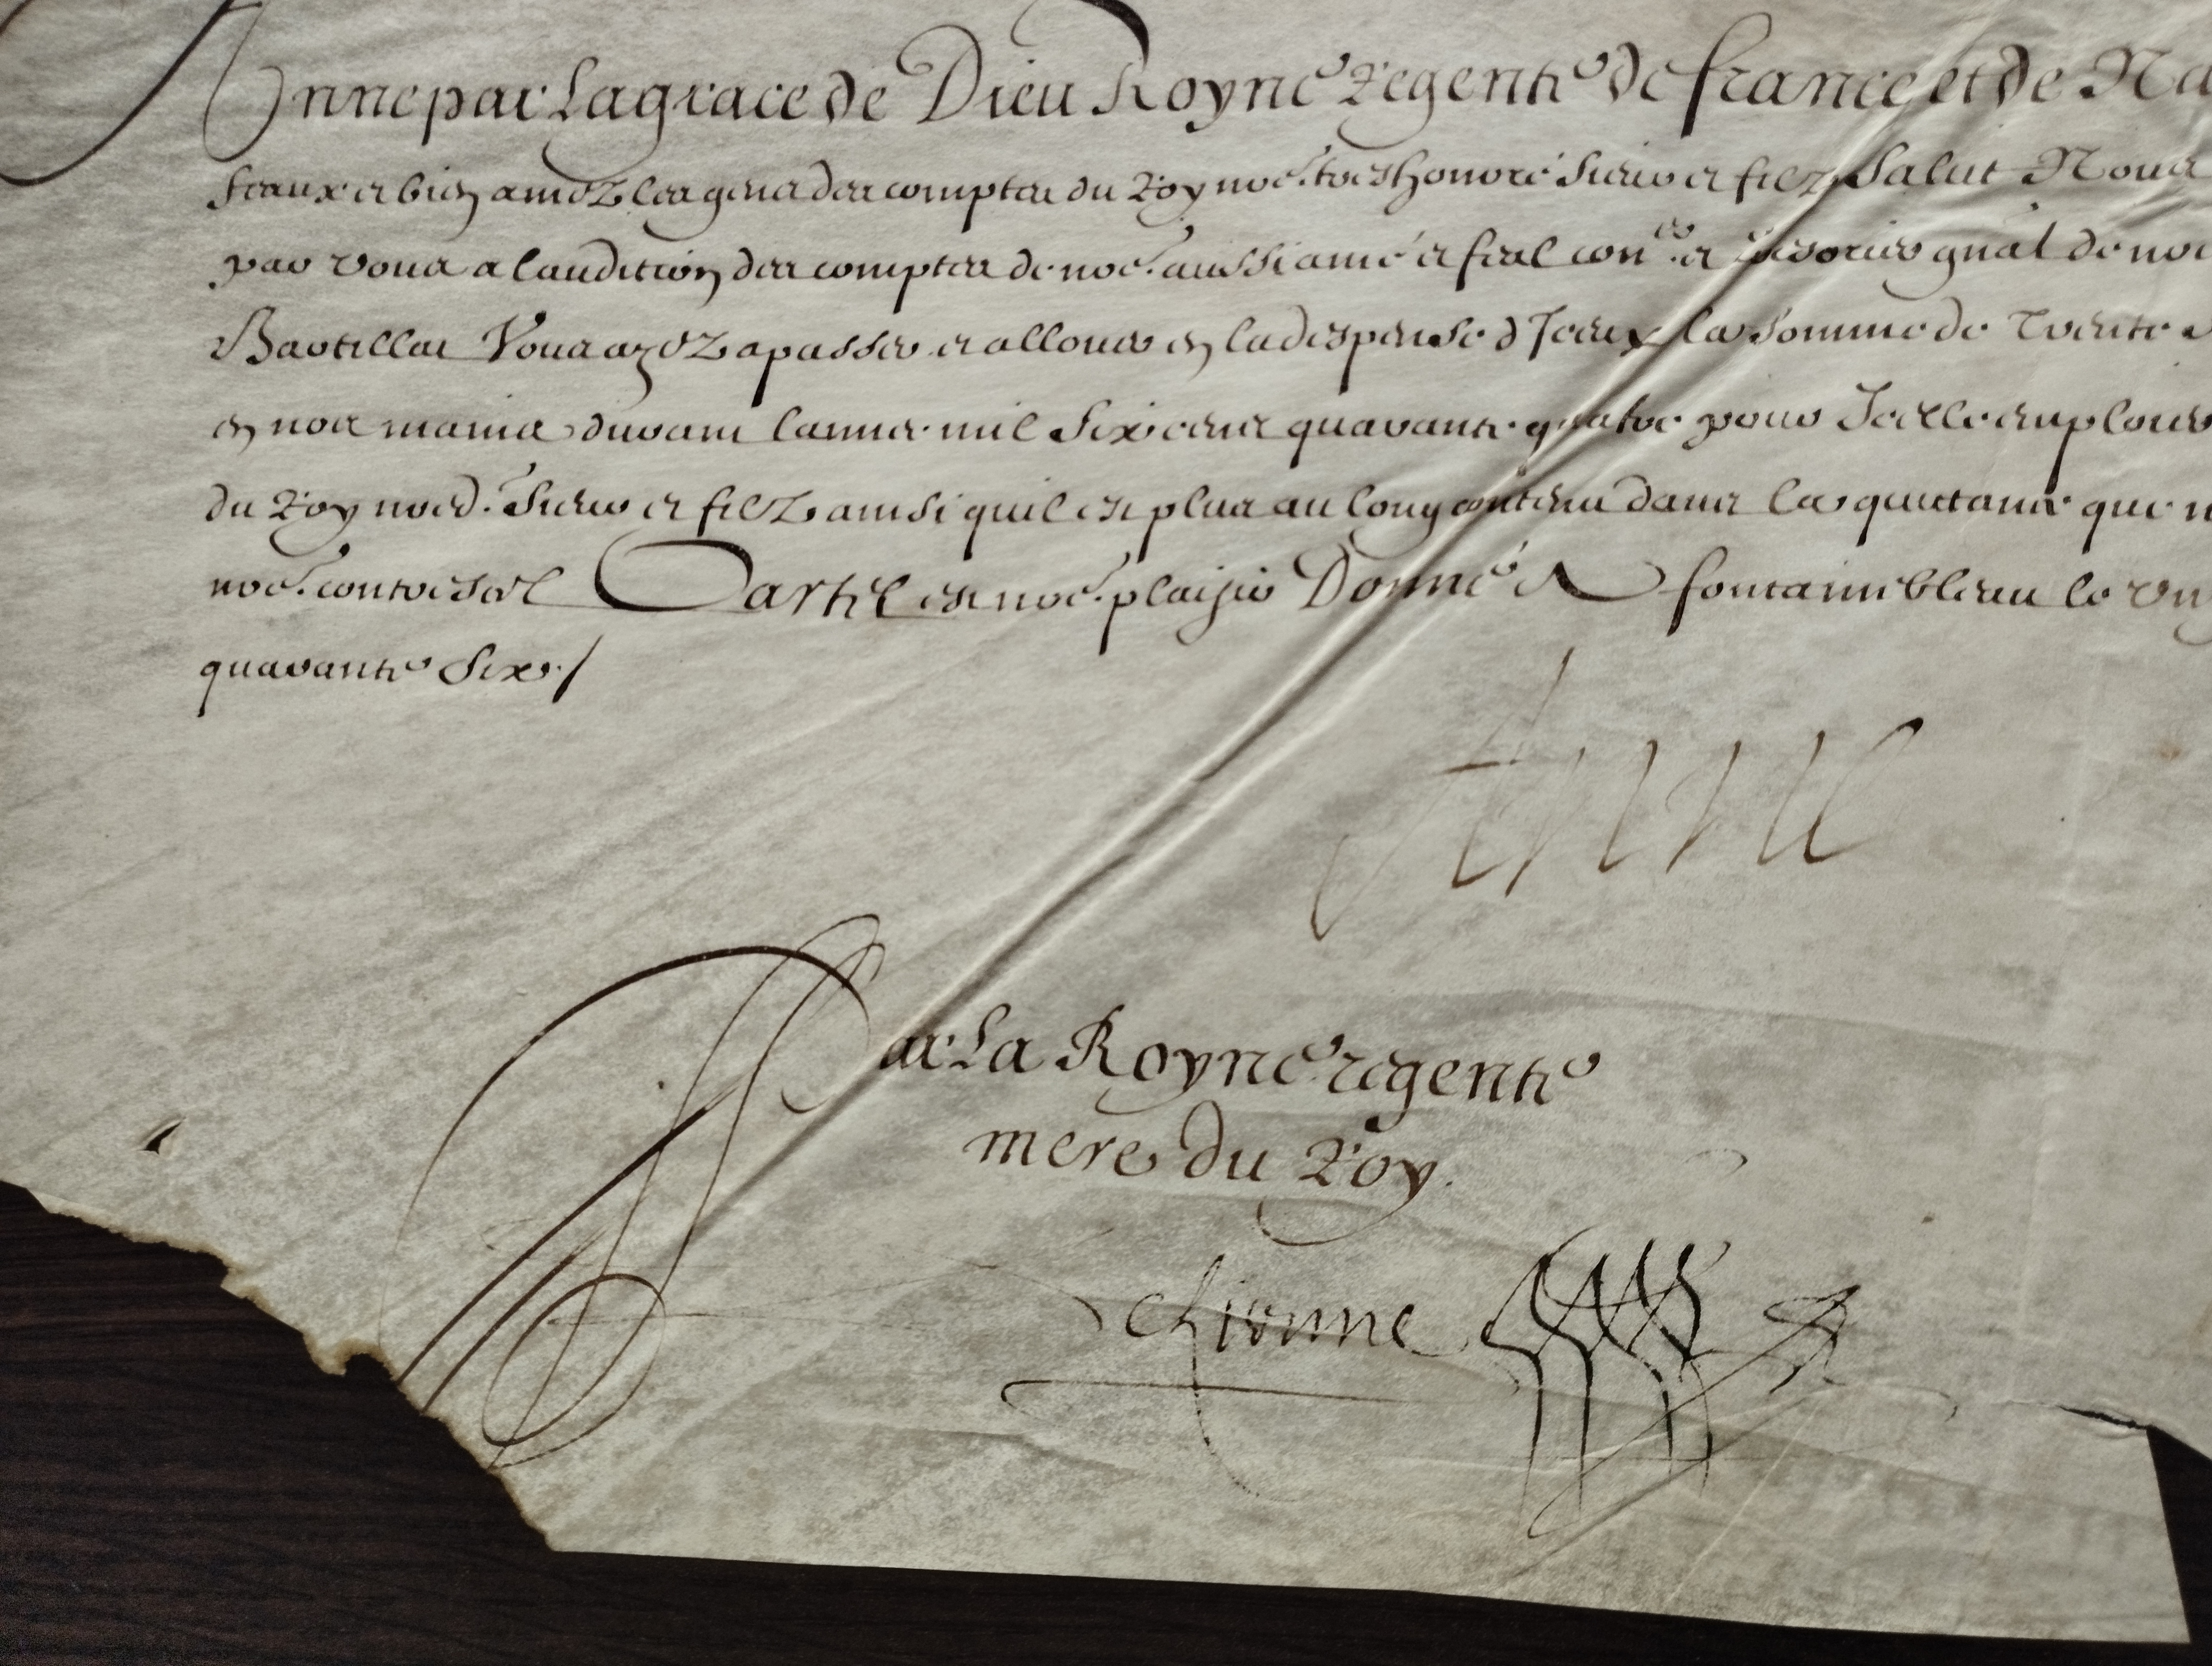 Anne par La grace de Dieu Royne regente de france et de Na
feaux et bien amez les gens des comptes du Roy noe. treshonoré Sieur et filz Salut Nous
par vous a laudition des comptes de noe. aussi amé et feal con.er et Tresorier gnal de noe
Bartillat Vous ayez a passer et allouer en la despense d Iceux la somme de Trente
en noz mains durant lannee mil Six cens quarante quatre pour Icelle employer
du Roy noed. Sieur et filz ainsi quil est plus au long contenu dans la quictance que n
noe. contreseel Car tel est noe. plaisir Donné A fontainebleau le
quarante Six./
Anne
Par La Royne regente
mere du Roy.